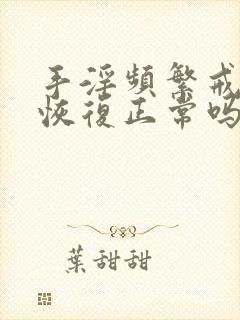 手淫頻繁戒
恢復正常吗
葉甜甜